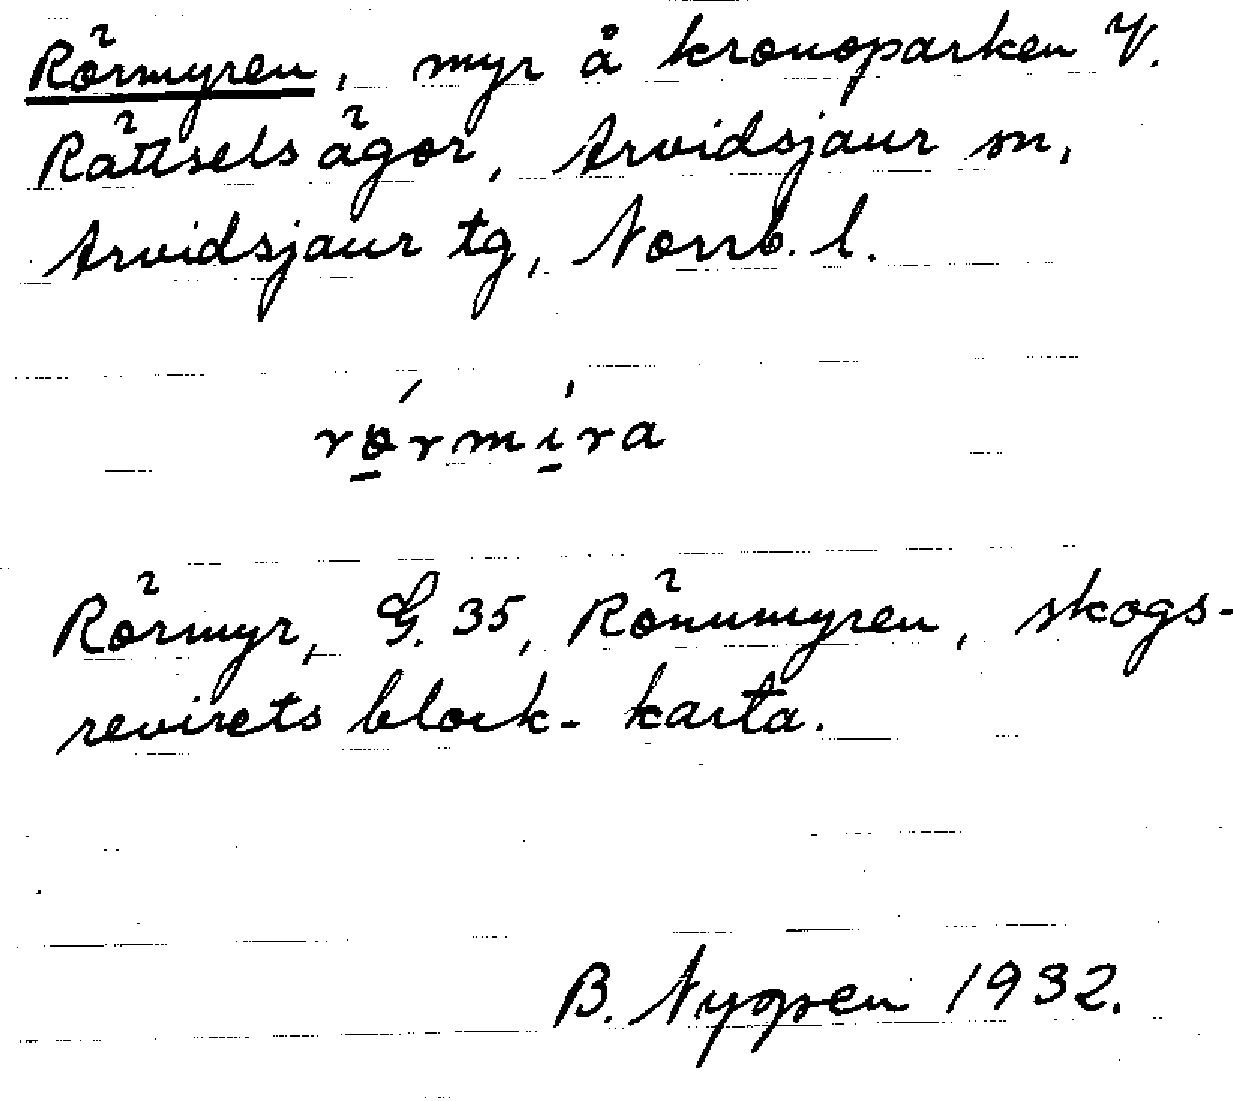 Rörmyren, myr å kronoparken V.
Rättselsägor, Arvidsjaur sn,
Arvidsjaur tg, Norrb. l.
rǿ̱rmı̱́ra
Rörmyr, G. 35, Rönnmyren, skogs-
revirets block- karta.
B. Nygren 1932.